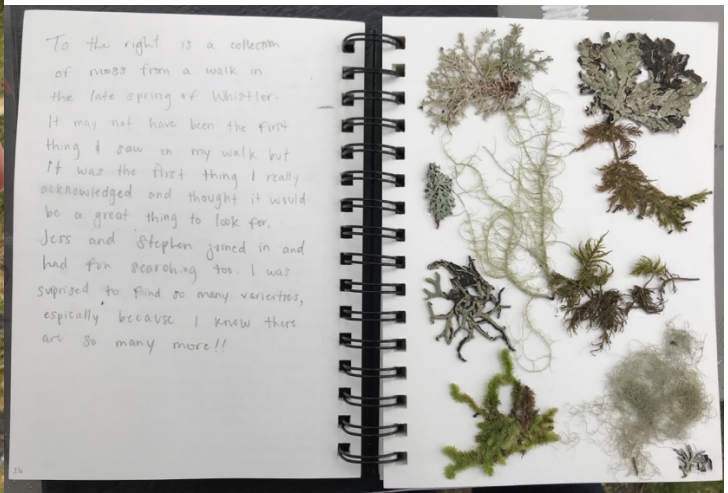 To the right is a collection
of moss from a walk in
the late spring of Whistler.
It may not have been the first
thing I saw on my walk but
it was the first thing I really
acknowledged and thought it would
be a great thing to look for.
Jess and Stephen joined in and
had fun searching too. I was
suprised to find so many varieties,
espically because I know there
are so many more!!